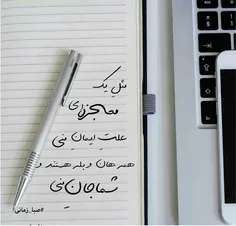 مثل یک
معجزه‌ای
علتِ ایمان منی
همه هان و بله هستند و
شما جانِ منی
#صبا_زمانی